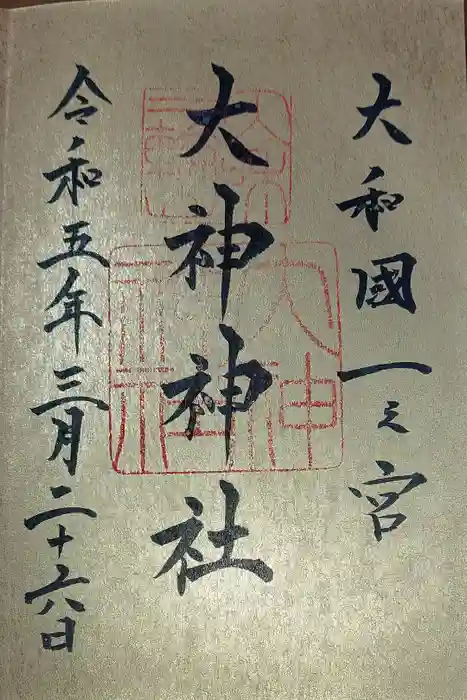 大和國一之宮
大神神社
令和五年三月二十六日